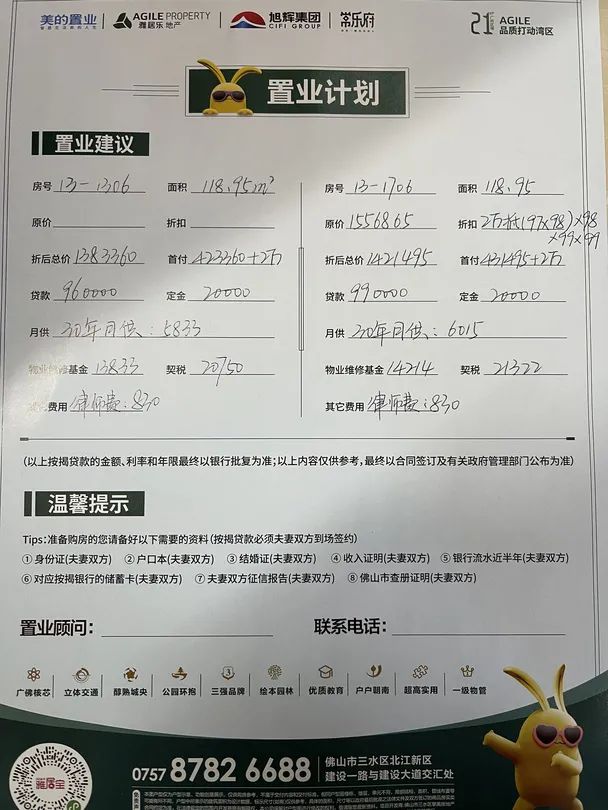 美的置业 AGILE PROPERTY 雅居乐 地产 旭辉集团 CIFI GROUP 常乐府 21 AGILE 品质打动湾区
置业计划
置业建议
房号 13-1306 面积 118.95m² 房号 13-1706 面积 118.95
原价 折扣 原价 1556865 折扣 2万抵(97×98)×98
×99×99
折后总价 1383360 首付 423360+2万 折后总价 1421495 首付 431495+2万
贷款 960000 定金 20000 贷款 990000 定金 20000
月供 30年月供:5833 月供 30年月供:6015
物业维修基金 13833 契税 20750 物业维修基金 14214 契税 21322
其它费用 律师费:830 其它费用 律师费:830
(以上按揭贷款的金额、利率和年限最终以银行批复为准;以上内容仅供参考,最终以合同签订及有关政府管理部门公布为准)
温馨提示
Tips:准备购房的您请备好以下需要的资料(按揭贷款必须夫妻双方到场签约)
①身份证(夫妻双方) ②户口本(夫妻双方) ③结婚证(夫妻双方) ④收入证明(夫妻双方) ⑤银行流水近半年(夫妻双方)
⑥对应按揭银行的储蓄卡(夫妻双方) ⑦夫妻双方征信报告(夫妻双方) ⑧佛山市查册证明(夫妻双方)
置业顾问: 联系电话:
广佛核芯 立体交通 醇熟城央 公园环抱 三强品牌 绘本园林 优质教育 户户朝南 超高实用 一级物管
雅居宝
0757 8782 6688 佛山市三水区北江新区
建设一路与建设大道交汇处